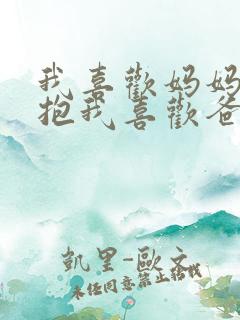 我喜歡妈妈
抱我喜歡爸
凱里-歐文
未经同意禁止转载